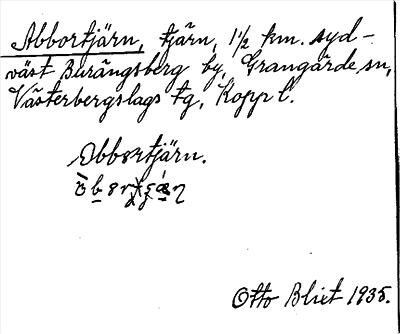 Abbortjärn, tjärn, 1½ km. syd-
väst Burängsberg by, Grangärde sn,
Västerbergslags tg, Kopp l.
Abbortjärn.
Otto Blixt 1935.